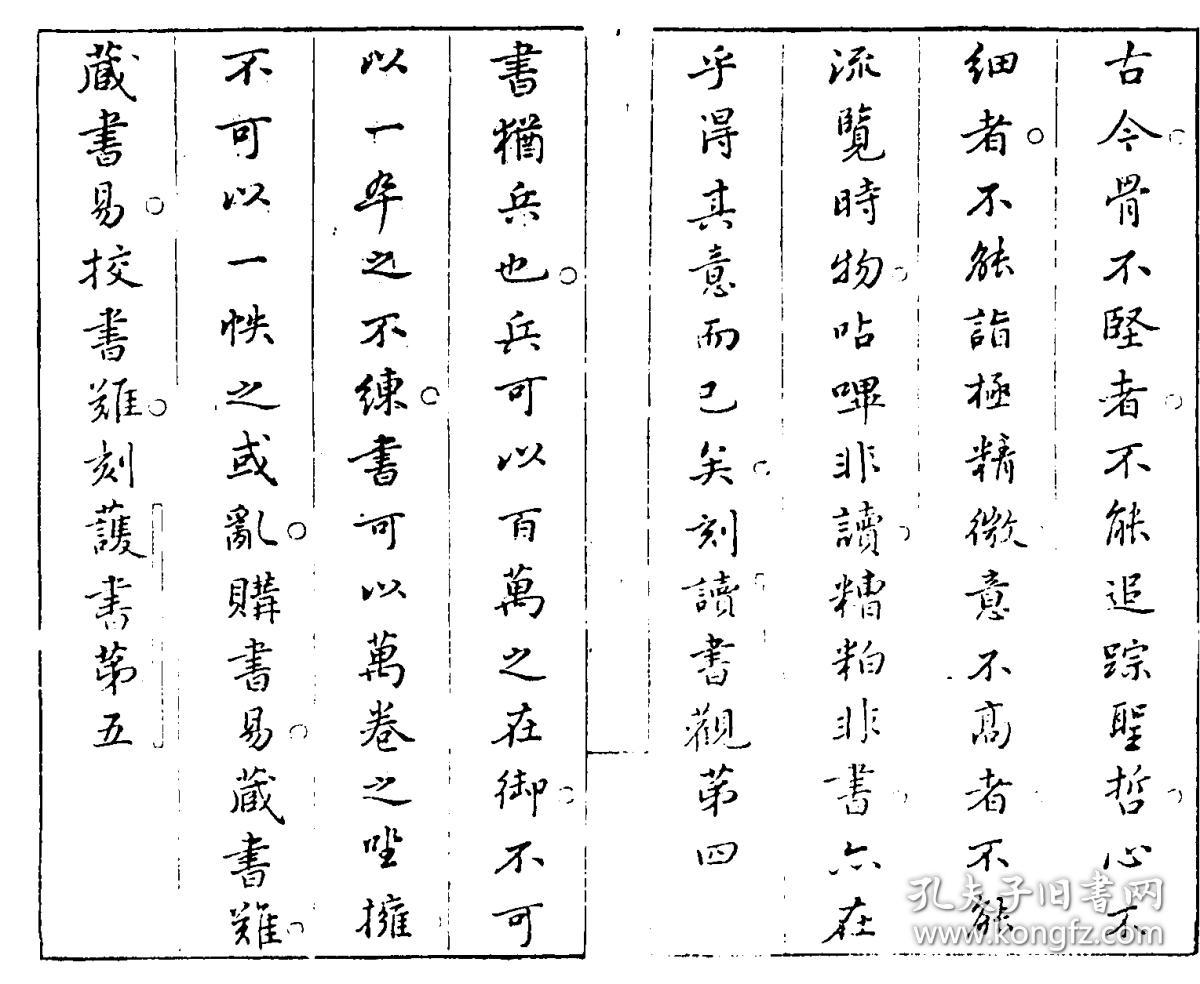 古今骨不堅者不能追踪聖哲心不
細者不能詣極精微意不高者不能
流覽時物呫嗶非讀糟粕非書亦在
乎得其意而已矣刻讀書觀第四
書猶兵也兵可以百萬之在御不可
以一卒之不練書可以萬卷之坐擁
不可以一帙之或亂購書易藏書難
藏書易挍書難刻護書第五
孔夫子旧书网
www.kongfz.com